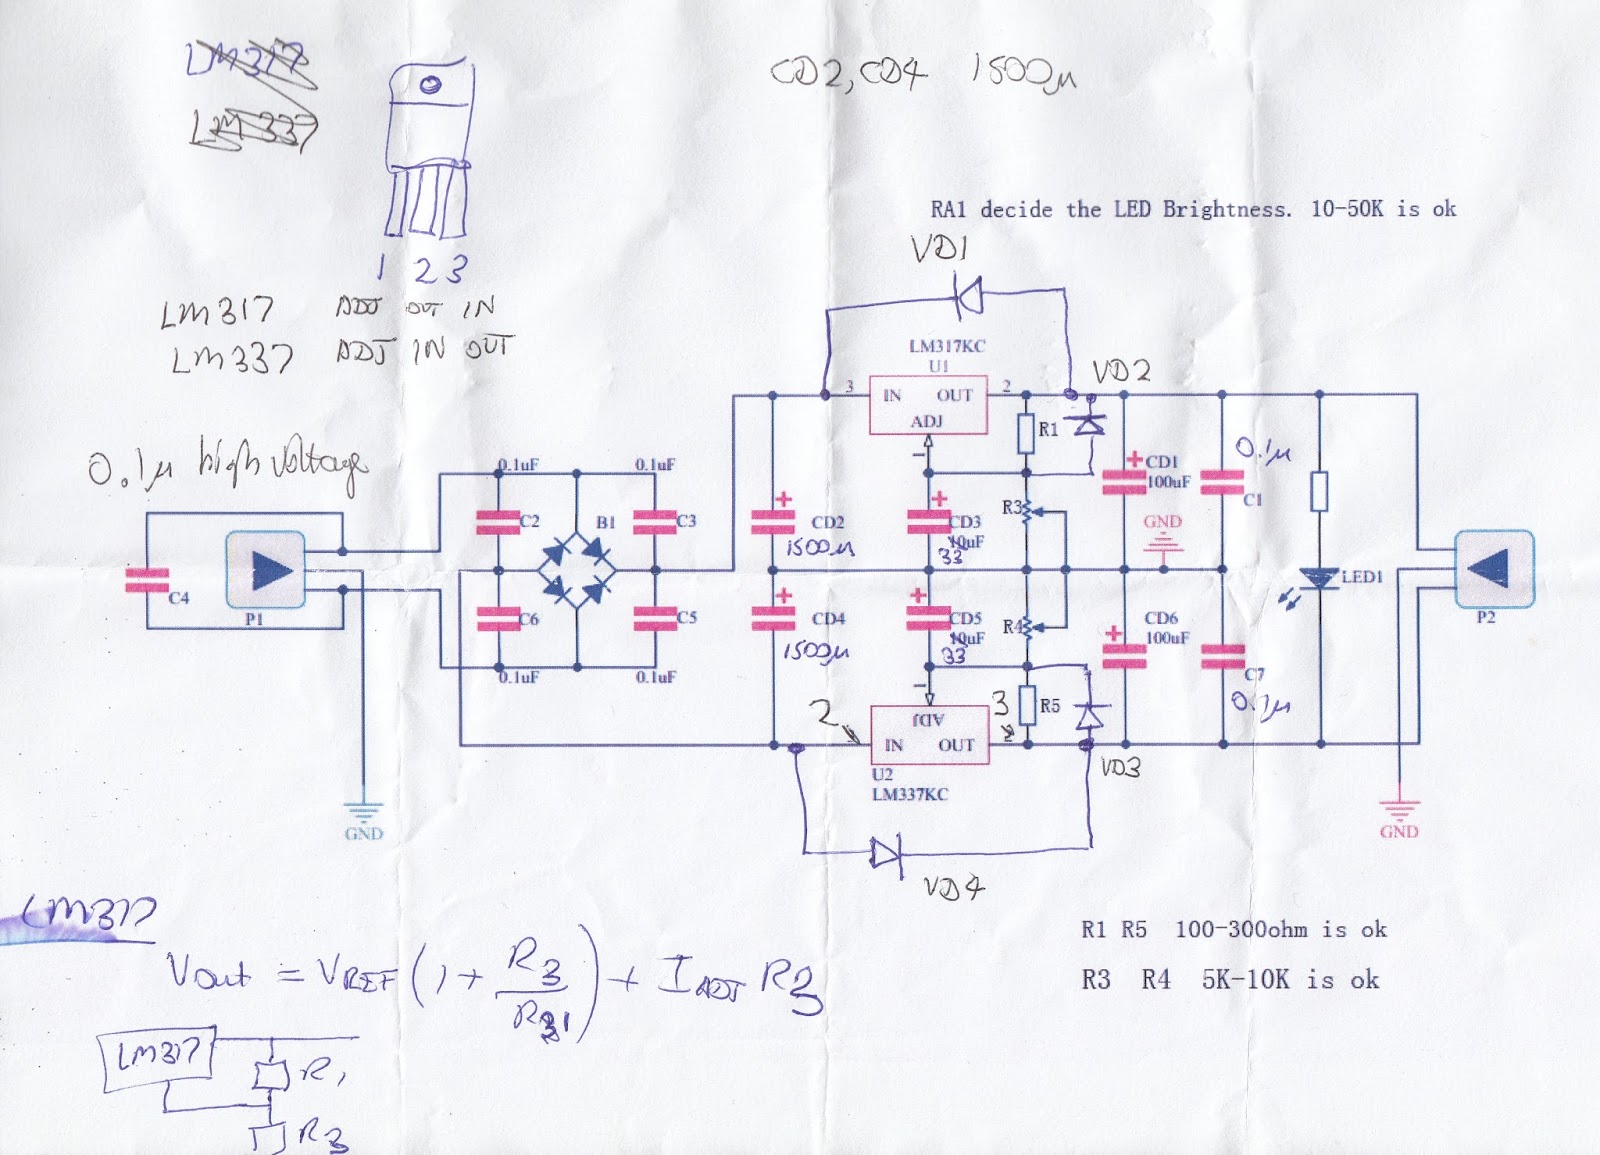 LM317
LM337
CD2, CD4 1500µ
RA1 decide the LED Brightness. 10-50K is ok
1 2 3
LM317 ADJ OUT IN
LM337 ADJ IN OUT
VD1
LM317KC
U1
VD2
3 IN OUT 2
ADJ
1
R1
0.1µ high voltage
0.1uF 0.1uF
C2 B1 C3
CD2
1500µ
CD3
10uF
33
R3
CD1
100uF
0.1µ
C1
GND
C4
P1
C6 C5
0.1uF 0.1uF
CD4
1500µ
CD5
10uF
33
R4
CD6
100uF
C7
0.1µ
LED1
P2
1
ADJ
R5
2 IN OUT 3
2
U2
LM337KC
VD3
GND
GND
VD4
LM317
Vout = VREF (1 + R3/R1) + IADJ R3
LM317 R1
R3
R1 R5 100-300ohm is ok
R3 R4 5K-10K is ok